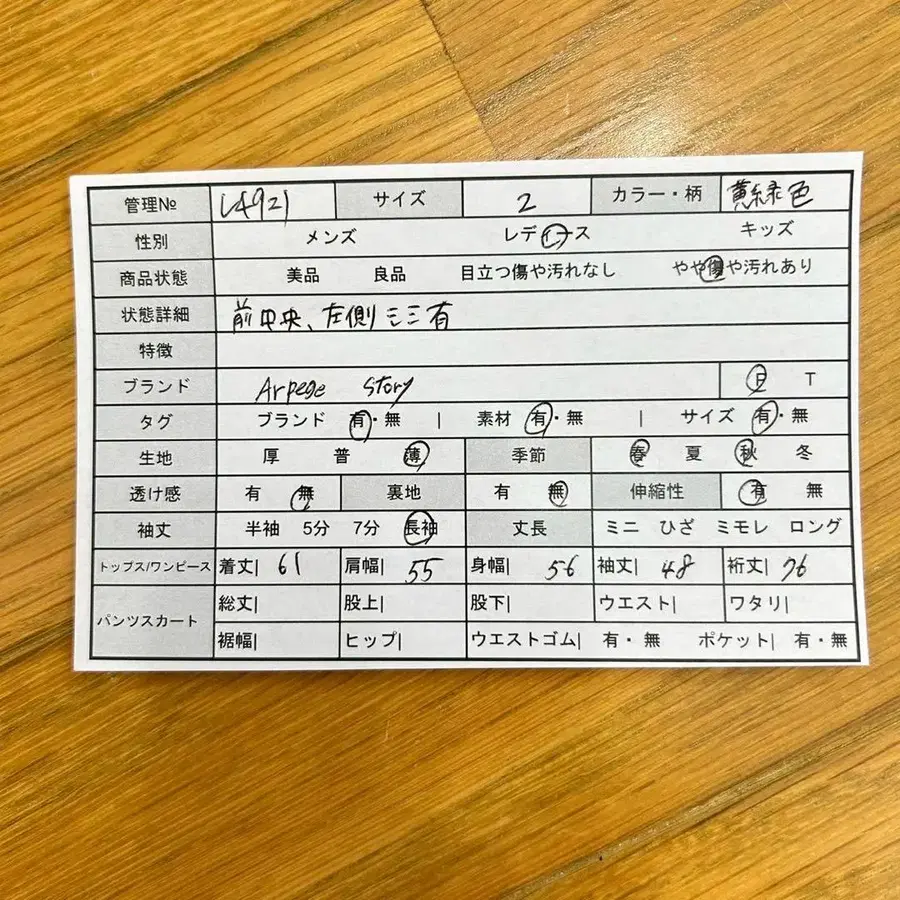 管理№ L4921 サイズ 2 カラー・柄 黄緑色
性別 メンズ レディース キッズ
商品状態 美品 良品 目立つ傷や汚れなし やや傷や汚れあり
状態詳細 前中央、左側シミ有
特徴
ブランド Arpege Story P T
タグ ブランド 有・無 | 素材 有・無 | サイズ 有・無
生地 厚 普 薄 季節 春 夏 秋 冬
透け感 有 無 裏地 有 無 伸縮性 有 無
袖丈 半袖 5分 7分 長袖 丈長 ミニ ひざ ミモレ ロング
トップス/ワンピース 着丈| 61 肩幅| 55 身幅| 56 袖丈| 48 裄丈| 76
パンツスカート 総丈| 股上| 股下| ウエスト| ワタリ|
裾幅| ヒップ| ウエストゴム| 有・無 ポケット| 有・無